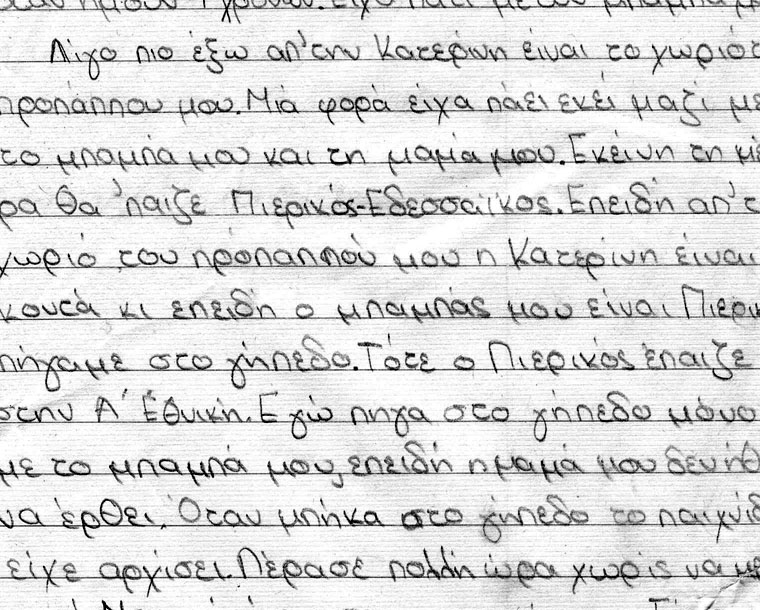 Λίγο πιο έξω απ'την Κατερίνη είναι το χωριό τ
προπάππου μου. Μια φορά είχα πάει εκεί μαζί με
το μπαμπά μου και τη μαμά μου. Εκείνη τη μέ
ρα θα 'παιζε Πιερικός-Εδεσσαϊκός. Επειδή απ'τ
χωριό του προπαππού μου η Κατερίνη είναι
κοντά κι επειδή ο μπαμπάς μου είναι Πιερικ
πήγαμε στο γήπεδο. Τότε ο Πιερικός έπαιζε
στην Α' Εθνική. Εγώ πήγα στο γήπεδο μόνο
με το μπαμπά μου, επειδή η μαμά μου δεν ήθ
να έρθει. Όταν μπήκα στο γήπεδο το παιχνίδ
είχε αρχίσει. Πέρασε πολλή ώρα χωρίς να με